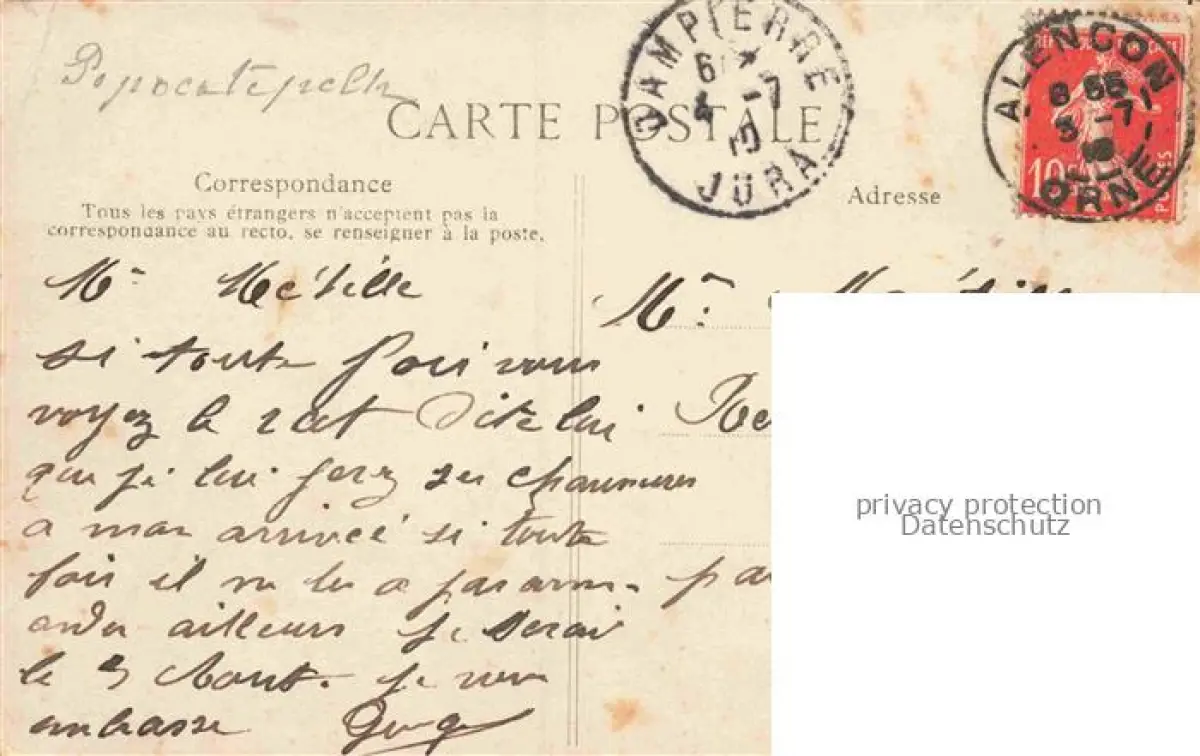 Popocatepelh
CARTE POSTALE
DAMPIERRE
6
4 -7
10
JURA
ALENCON
8 55
3 -7
10
ORNE
10
POSTES
Correspondance
Tous les pays étrangers n'acceptent pas la
correspondance au recto, se renseigner à la poste.
Adresse
Mr Métille
si toute fois vous
voyez le Dite lui
que je lui ferez ses chaussures
a mon arrivée si toute
fois il ne les a pas comm-
ander ailleurs je serai
le 5 Aout. je vous
embrasse Georges
Mr.
privacy protection
Datenschutz